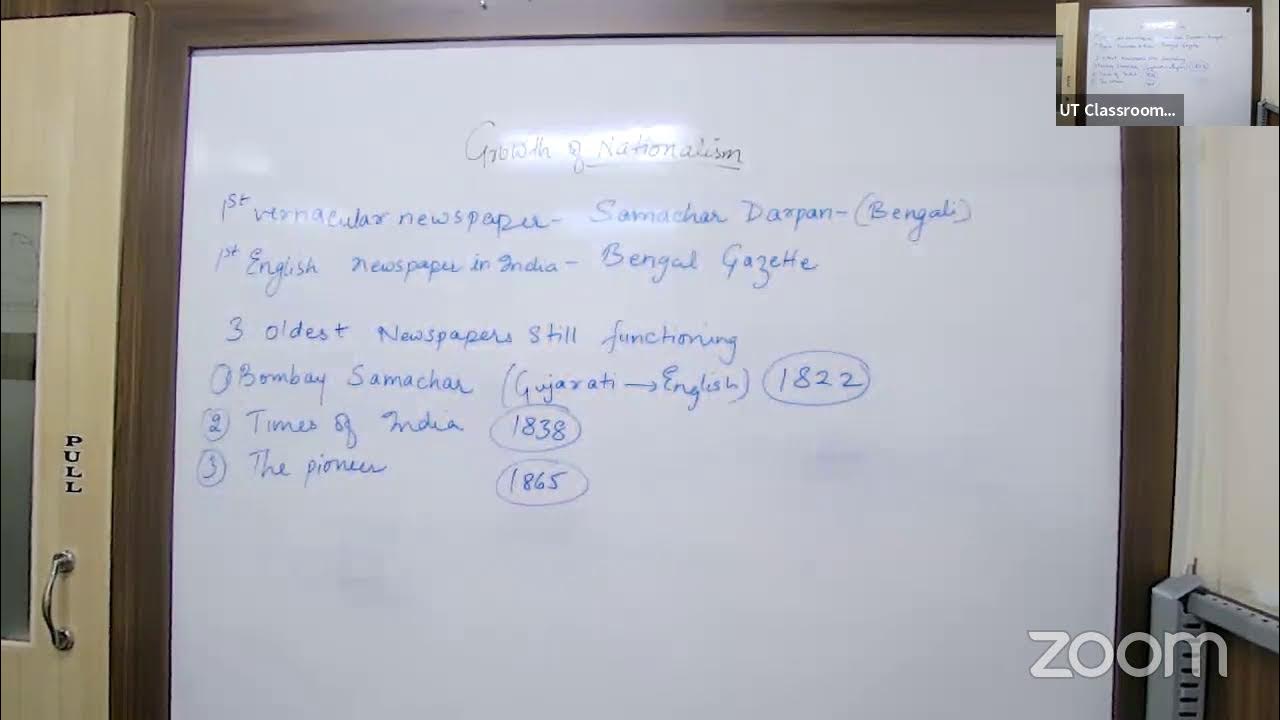 UT Classroom...
Growth of Nationalism
1st vernacular newspaper - Samachar Darpan - (Bengali)
1st English newspaper in India - Bengal Gazette
3 oldest Newspapers Still functioning
① Bombay Samachar (Gujarati → English) 1822
② Times of India 1838
③ The pioneer 1865
PULL
zoom